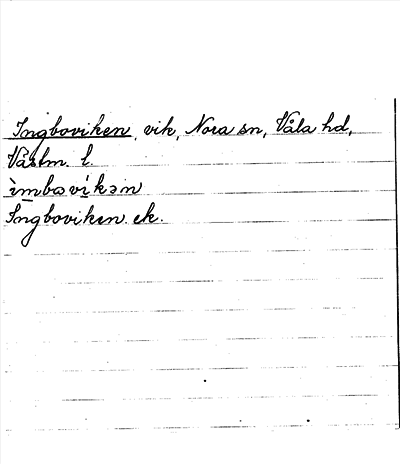 Ingboviken, vik, Nora sn, Våla hd,
Västm. l.
ìmbavíkən
Ingboviken. ek.